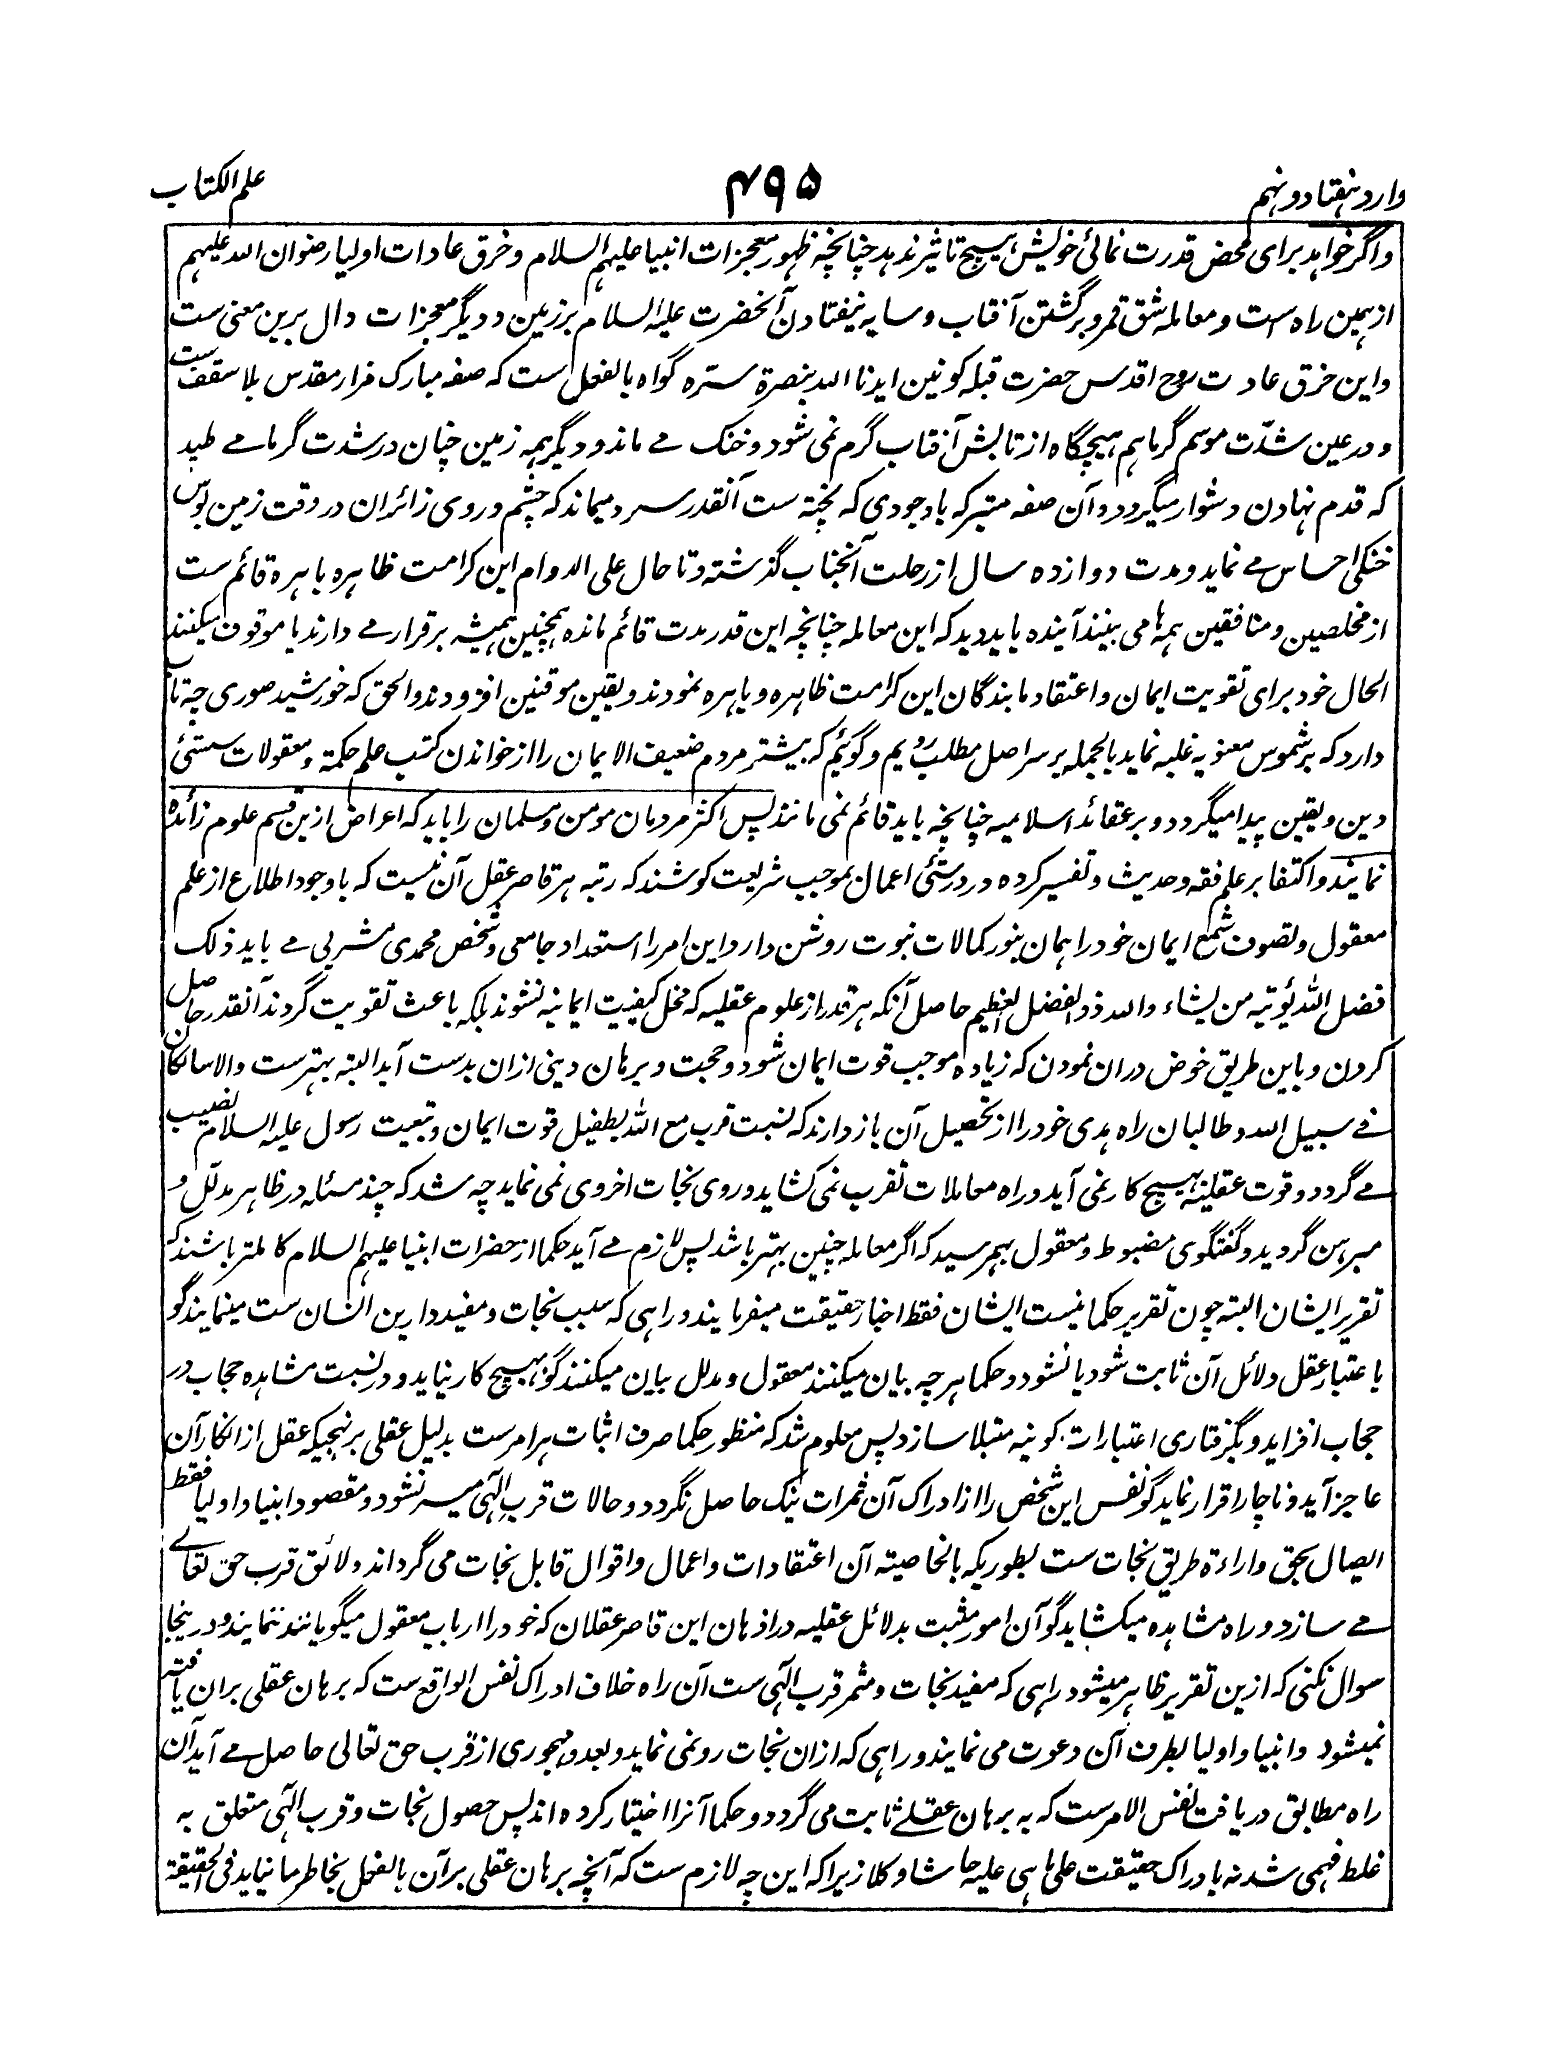 وارد ہفتاد و نہم
۴۹۵
علم الکتاب
و اگر خواہد برای محض قدرت نمائی خویش ہیچ تاثیر ندہد چنانچہ ظہور معجزات انبیا علیہم السلام و خرق عادات اولیا رضوان اللہ علیہم
از ہمین راہ است و معاملہ شق قمر و برگشتن آفتاب و سایہ نیفتادن آنحضرت علیہ السلام بر زمین و دیگر معجزات دال برین معنی ست
و این خرق عادت روح اقدس حضرت قبلہ کونین ایدنا اللہ بنصرۃ سرّہ گواہ بالفعل ست کہ صفہ مبارک مزار مقدس بلا سقف ست
و در عین شدّت موسم گرما ہم ہیچگاہ از تابش آفتاب گرم نمی شود و خنک مے ماند و دیگر ہمہ زمین چنان در شدت گرما مے طپد
کہ قدم نہادن دشوار میگردد و آن صفہ متبرکہ باوجودی کہ پختہ ست آنقدر سرد میماند کہ چشم و روی زائران در وقت زمین بوس
خنکی احساس مے نماید و مدت دوازدہ سال از رحلت آنجناب گذشتہ و تا حال علی الدوام این کرامت ظاہرہ باہرہ قائم ست
از مخلصین و منافقین ہمہ ہا می بینند آیندہ باید دید کہ این معاملہ چنانچہ این قدر مدت قائم ماندہ ہمچنین ہمیشہ برقرار مے دارند یا موقوف میکنند
الحال خود برای تقویت ایمان و اعتقاد ما بندگان این کرامت ظاہرہ و باہرہ نمودند و یقین موقنین افزودند و الحق کہ خورشید صوری چہ تاب
دارد کہ بر شموس معنویہ غلبہ نماید بالجملہ بر سر اصل مطلب رویم و گوئیم کہ بیشتر مردم ضعیف الایمان را از خواندن کتب علم حکمۃ و معقولات سستیٔ
دین و یقین پیدا میگردد و بر عقائد اسلامیہ چنانچہ باید قائم نمی مانند پس اکثر مردمان مومن و مسلمان را باید کہ اعراض ازین قسم علوم زائدہ
نمایند و اکتفا بر علم فقہ و حدیث و تفسیر کردہ در درستئی اعمال بموجب شریعت کوشند کہ رتبہ ہر قاصر عقل آن نیست کہ باوجود اطلاع از علم
معقول و تصوف شمع ایمان خود را ہمان بنور کمالات نبوت روشن دارد این امر را استعداد جامعی و شخص محمدی مشربی مے باید ذلک
فضل اللہ یؤتیہ من یشاء واللہ ذو الفضل العظیم حاصل آنکہ ہر قدر از علوم عقلیہ کہ مخل کیفیت ایمانیہ نشوند بلکہ باعث تقویت گردند آنقدر حاصل
کردن و باین طریق خوض دران نمودن کہ زیادہ موجب قوت ایمان شود و حجت و برہان دینی ازان بدست آید البتہ بہتر ست والا سالکان
فے سبیل اللہ و طالبان راہ ہدی خود را از تحصیل آن باز دارند کہ نسبت قرب مع اللہ بطفیل قوت ایمان و تبعیت رسول علیہ السلام نصیب
مے گردد و قوت عقلیہ ہیچ کار نمی آید و راہ معاملات تقرب نمی کشاید و روی نجات اخروی نمی نماید چہ شد کہ چند مسئلہ در ظاہر مدلل و
مبرہن گردید و گفتگوی مضبوط و معقول بہم رسید کہ اگر معاملہ چنین بہتر باشد پس لازم مے آید حکما از حضرات انبیا علیہم السلام کاملتر باشند کہ
تقریر ایشان البتہ چون تقریر حکما نیست ایشان فقط اخبار حقیقت میفرمایند و راہی کہ سبب نجات و مفید دارین انسان ست مینمایند گو
باعتبار عقل دلائل آن ثابت شود یا نشود و حکما ہر چہ بیان میکنند معقول و مدلل بیان میکنند گو ہیچ کار نیاید و در نسبت مشاہدہ حجاب در
حجاب افزاید و بگرفتاری اعتبارات کونیہ مبتلا سازد پس معلوم شد کہ منظور حکما صرف اثبات ہر امر ست بدلیل عقلی بر نہجیکہ عقل از انکار آن
عاجز آید و ناچار اقرار نماید گو نفس این شخص را از ادراک آن ثمرات نیک حاصل نگردد و حالات قرب الٰہی میسر نشود و مقصود انبیا و اولیا فقط
ایصال بحق و اراءۃ طریق نجات ست بطوریکہ بالخاصیتہ آن اعتقادات و اعمال و اقوال قابل نجات می گرداند و لائق قرب حق تعالے
مے سازد و راہ مشاہدہ میکشاید گو آن امور مثبت بدلائل عقلیہ در اذہان این قاصر عقلان کہ خود را ارباب معقول میگویانند ننمایند و در ینجا
سوال نکنی کہ ازین تقریر ظاہر میشود راہی کہ مفید نجات و مثمر قرب الٰہی ست آن راہ خلاف ادراک نفس الواقع ست کہ برہان عقلی بران یافتہ
نمیشود و انبیا و اولیا بطرف آن دعوت می نمایند و راہی کہ ازان نجات رو نمی نماید و بعد و مہجوری از قرب حق تعالی حاصل مے آید آن
راہ مطابق دریافت نفس الامر ست کہ بہ برہان عقلے ثابت می گردد و حکما آنرا اختیار کردہ اند پس حصول نجات و قرب الٰہی متعلق بہ
غلط فہمی شد نہ بادراک حقیقت علی ما ہی علیہ حاشا و کلا زیرا کہ این چہ لازم ست کہ آنچہ برہان عقلی بر آن بالفعل بخاطر ما نیاید فی الحقیقۃ